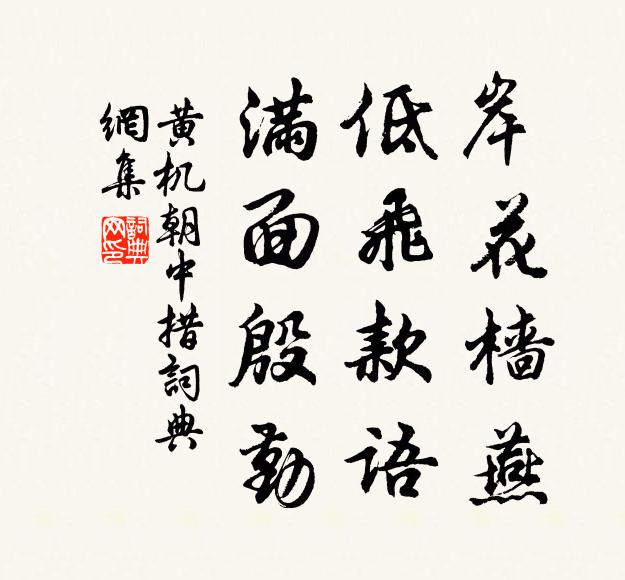 岸花樯燕
低飛款语
满面殷勤
黄机朝中措詞典
網集
詞典
网印